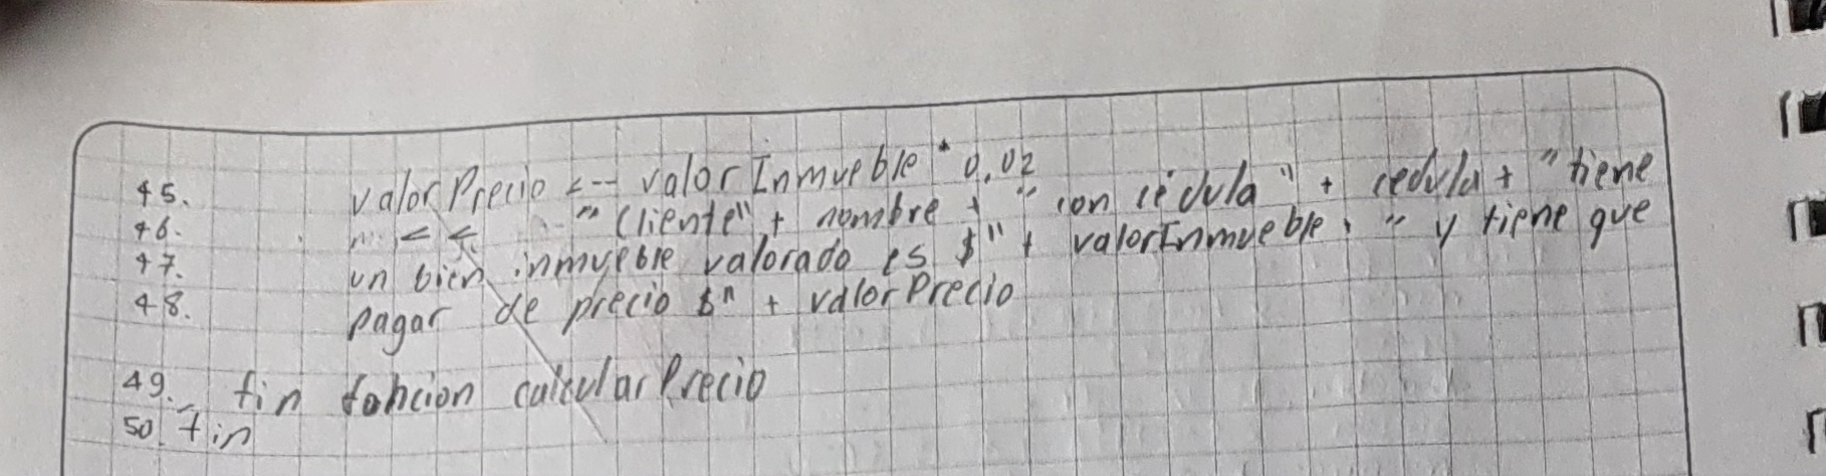 45. valorPrecio <-- valorInmueble * 0.02
46. << "Cliente" + nombre + " con cédula" + cedula + "tiene
47. un bien inmueble valorado es $" + valorInmueble + " y tiene que
48. pagar de precio $" + valorPrecio
49. fin funcion calcularPrecio
50. fin